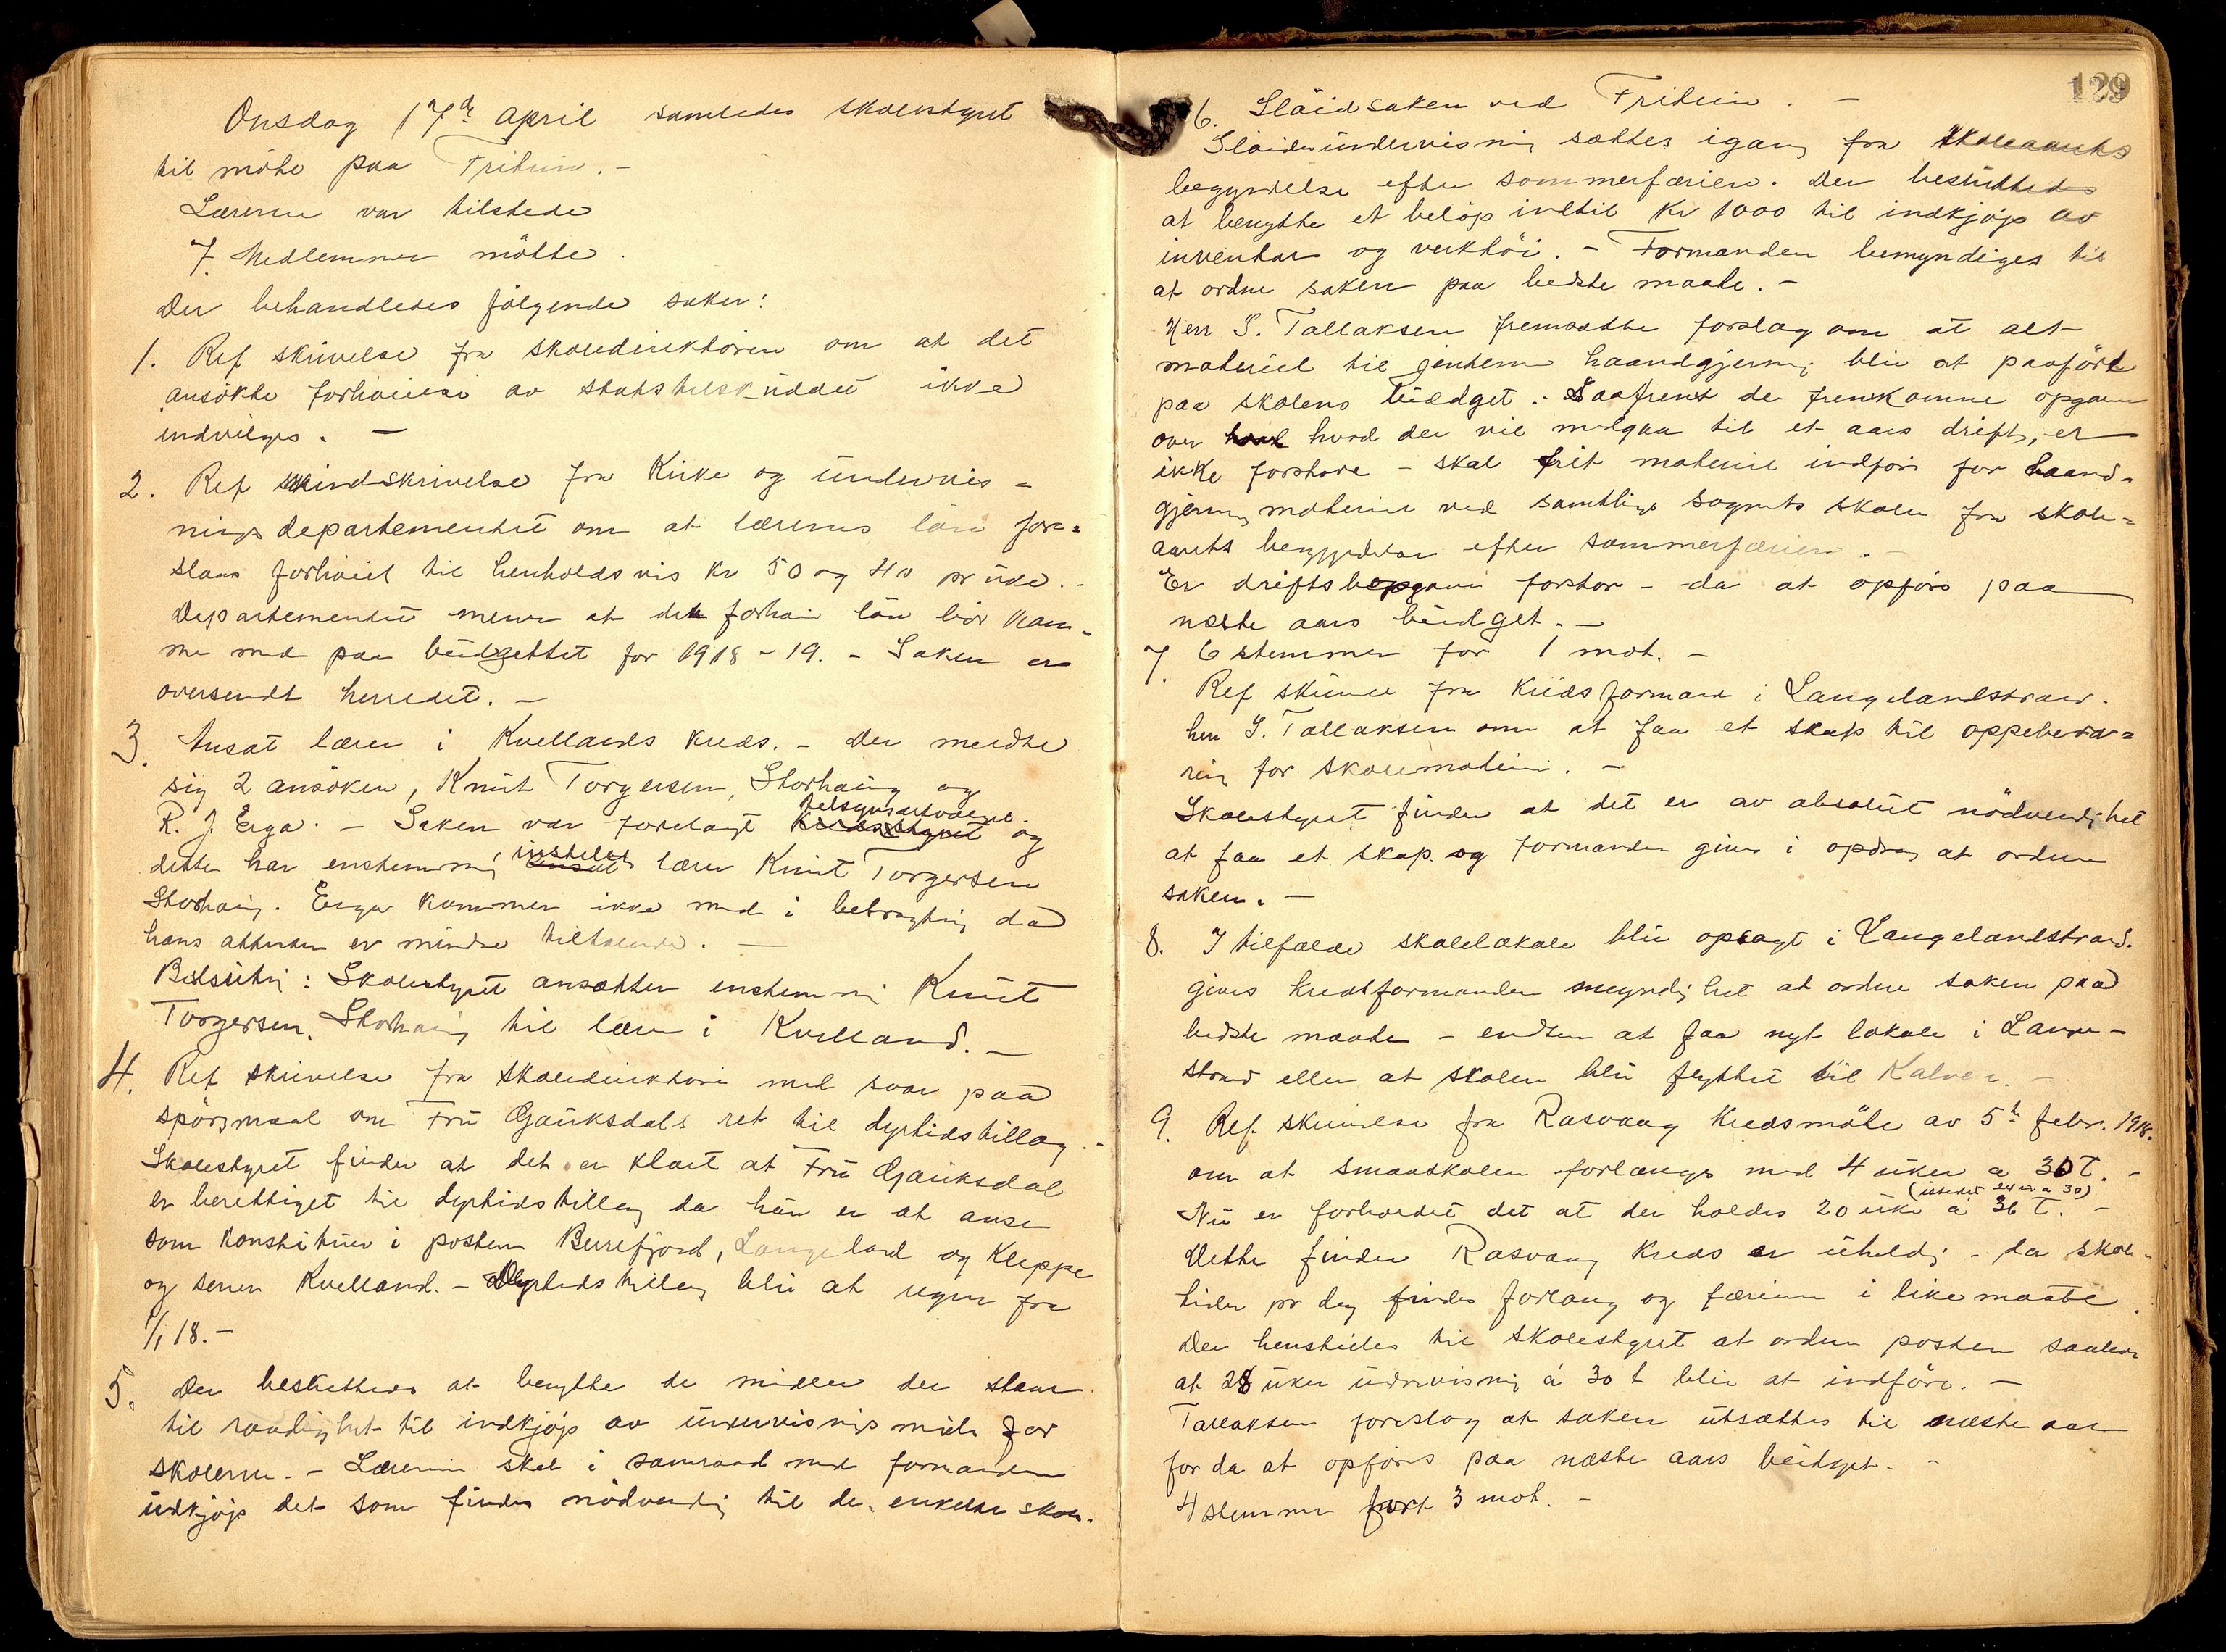 Onsdag 17de April samledes skolestyret
til möte paa Frihein. -
Lærerne var tilstede
7. Medlemmer mötte.
Der behandledes følgende saker:
1. Ref skrivelse fra skoledirektören om at det
ansökte forhöielse av statstilskuddet ikke
indvilges. -
2. Ref skrivelse fra Kirke og undervis=
nings departementet om at lærernes lön fore=
slaaes forhöiet til henholdsvis Kr 50 og 40 pr uke. -
Departementet mener at den forhöie lön bör kom=
me med paa budgettet for 1918-19. - Saken er
oversendt herredet. -
3. Ansat lærer i Kvellands Kreds. - Der meldte
sig 2 ansökere, Knut Torgersen, Storhaug og
R. J. Erga. - Saken var forelagt Kredsstyret tilsynsutvalget og
dette har enstemmig ansat instillet lærer Knut Torgersen
Storhaug. Erga kommer ikke med i betragtning da
hans attester er mindre tiltalende. -
Beslutning: Skolestyret ansætter enstemmig Knut
Torgersen, Storhaug til lærer i Kvelland. -
4. Ref skrivelse fra Skoledirektören med svar paa
spörsmaal om Fru Gauksdals ret til dyrtidstillæg. -
Skolestyret finder at det er klart at Fru Gauksdal
er berettiget til dyrtidstillæg da hun er at anse
som konstituert i posten Berrefjord, Langeland og Kleppe
og senere Kvelland. - Dyrtidstillæg blir at regne fra
1/1 18. -
5. Der besluttedes at benytte de midler der staar
til raadighet til indkjöp av undervisnings midler for
skolerne. - Lærerne skal i samraad med formanden
indkjöpe det som findes nödvendig til de enkelte skoler.
129
6. Slöidsaken ved Frihein. -
Slöidundervisning sættes igang fra skoleaarets
begyndelse efter sommerferien. Der besluttedes
at benytte et belöp indtil Kr 1000 til indkjöp av
inventar og verktöi. - Formanden bemyndiges til
at ordne saken paa bedste maate. -
Herr S. Tallaksen fremsatte forslag om at alt
materiel til jenternes haandgjerning blir at paaført
paa skolens budget. - Saafremt de fremkomne opgaver
over hvad der vil medgaa til et aars drift, er
ikke forstore - skal frit materiel indføres for haand=
gjerning materiel ved samtlige sognets skoler fra skole=
aarets begyndelse efter sommerferien. -
Er driftsopgaven forstor - da at opføres paa
næste aars budget. -
6 stemmer for 1 mot. -
7. Ref skrivelse fra Kredsformand i Langelandstrand.
herr S. Tallaksen om at faa et skap til oppebeva=
ring for skolemateriel. -
Skolestyret finder at det er av absolut nödvendighet
at faa et skap og formanden gives i opdrag at ordne
saken. -
8. I tilfælde skolelokale blir opsagt i Langelandstrand.
gives kredsformanden myndighet at ordne saken paa
bedste maate - enten at faa nyt lokale i Lange-
strand eller at skolen blir flyttet til Kalven. -
9. Ref. skrivelse fra Rasvaag Kredsmöte av 5te febr. 1918.
om at smaaskolen forlænges med 4 uker a 30 T. -
Nu er forholdet det at der holdes 20 uker a 36 T. (istedet 24 u a 30) -
Dette finder Rasvaag Kreds er uheldig - da skole=
tiden pr dag findes forlang og ferien i like maate.
Der henstilles til skolestyret at ordne posten saaledes
at 28 uker undervisning á 30 t blir at indføre. -
Tallaksen foreslog at saken utsættes til næste aar
for da at opføres paa næste aars budget. -
4 stemmer for 3 mot. -